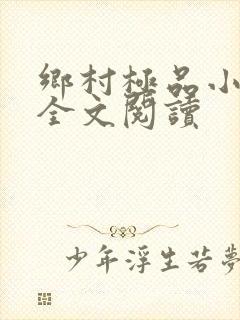 鄉村極品小
全文閱讀
少年浮生若夢